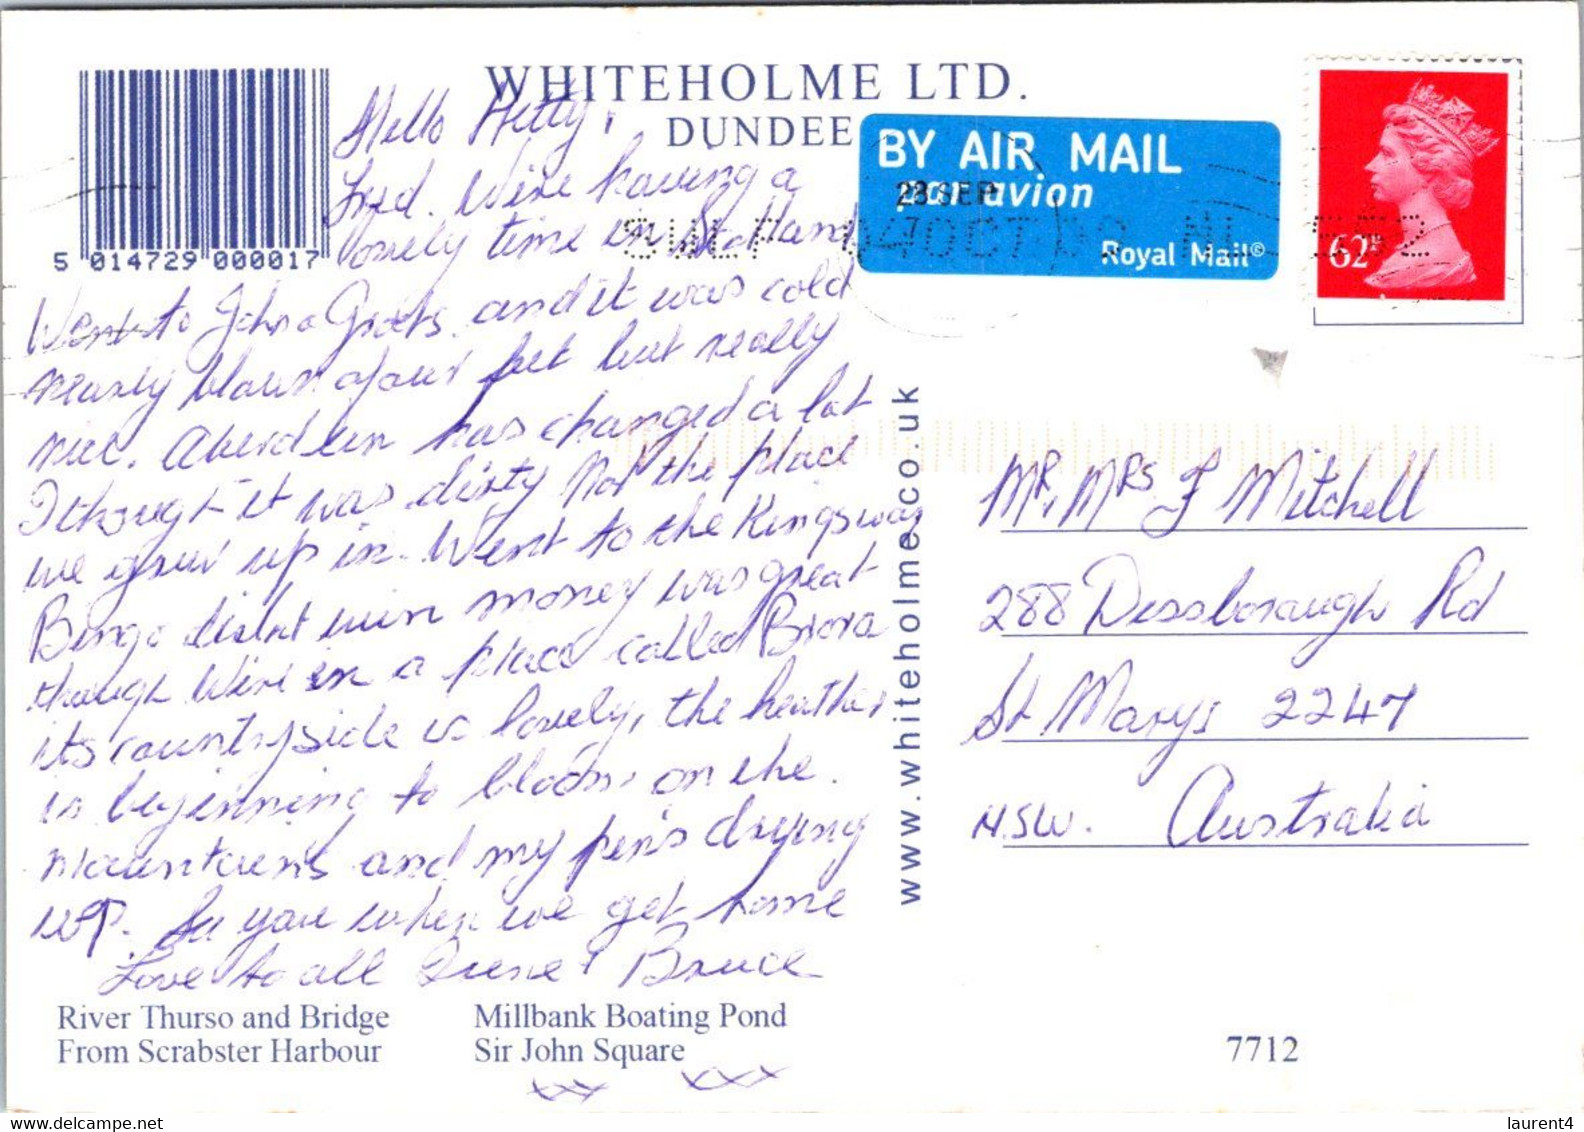 WHITEHOLME LTD.
DUNDEE
BY AIR MAIL
par avion
Royal Mail©
28 SEP
62P
5 014729 000017
Hello Hetty,
Fred. We're having a
lovely time in Scotland
Went to John o Groats and it was cold
nearly blown of our feet but really
nice. Aberdeen has changed a lot
I thought it was dirty Not the place
we grew up in. Went to the Kingsway
Bingo didn't win money was great
though We're in a place called Brora
its countryside is lovely, the heather
is beginning to bloom on the.
mountains and my pen's drying
up. See you when we get home
Love to all Irene & Bruce
xxx xxx
River Thurso and Bridge
From Scrabster Harbour
Millbank Boating Pond
Sir John Square
www.whiteholmeco.uk
Mr, Mrs F Mitchell
288 Dessborough Rd
St Marys 2247
N.SW. Australia
7712
https://www.delcampe.net
laurent4